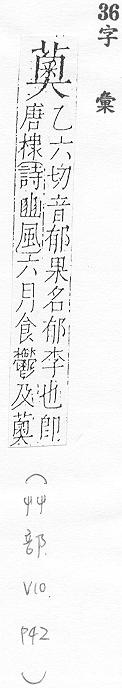 36字彙
薁
乙六切音郁果名郁李也卽
唐棣詩豳風六月食鬱及薁
(艸部 V10. P42)